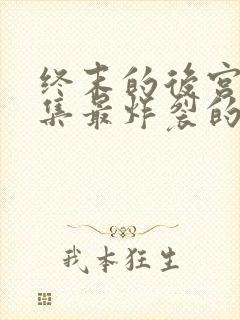 终末的後宫
集最炸裂的
我本狂生